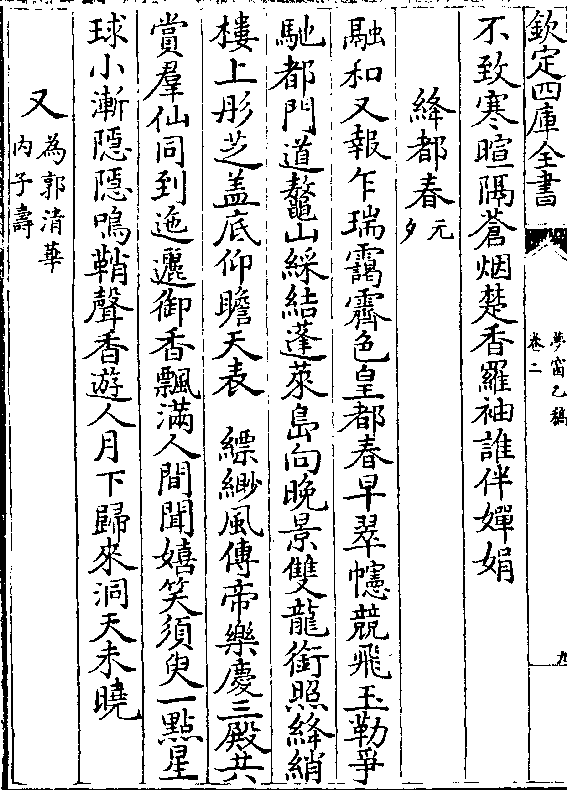 欽定四庫全書
夢窗乙稿
卷二
九
不致寒暄隔蒼烟楚香羅袖誰伴嬋娟
絳都春元夕
融和又報乍瑞靄霽色皇都春早翠幰競飛玉勒爭
馳都門道鰲山綵結蓬萊島向晚景雙龍銜照絳綃
樓上彤芝盖底仰瞻天表　縹緲風傳帝樂慶三殿共
賞羣仙同到迤邐御香飄滿人間聞嬉笑須臾一點星
球小漸隱隱鳴鞘聲香遊人月下歸來洞天未曉
又為郭清華内子壽